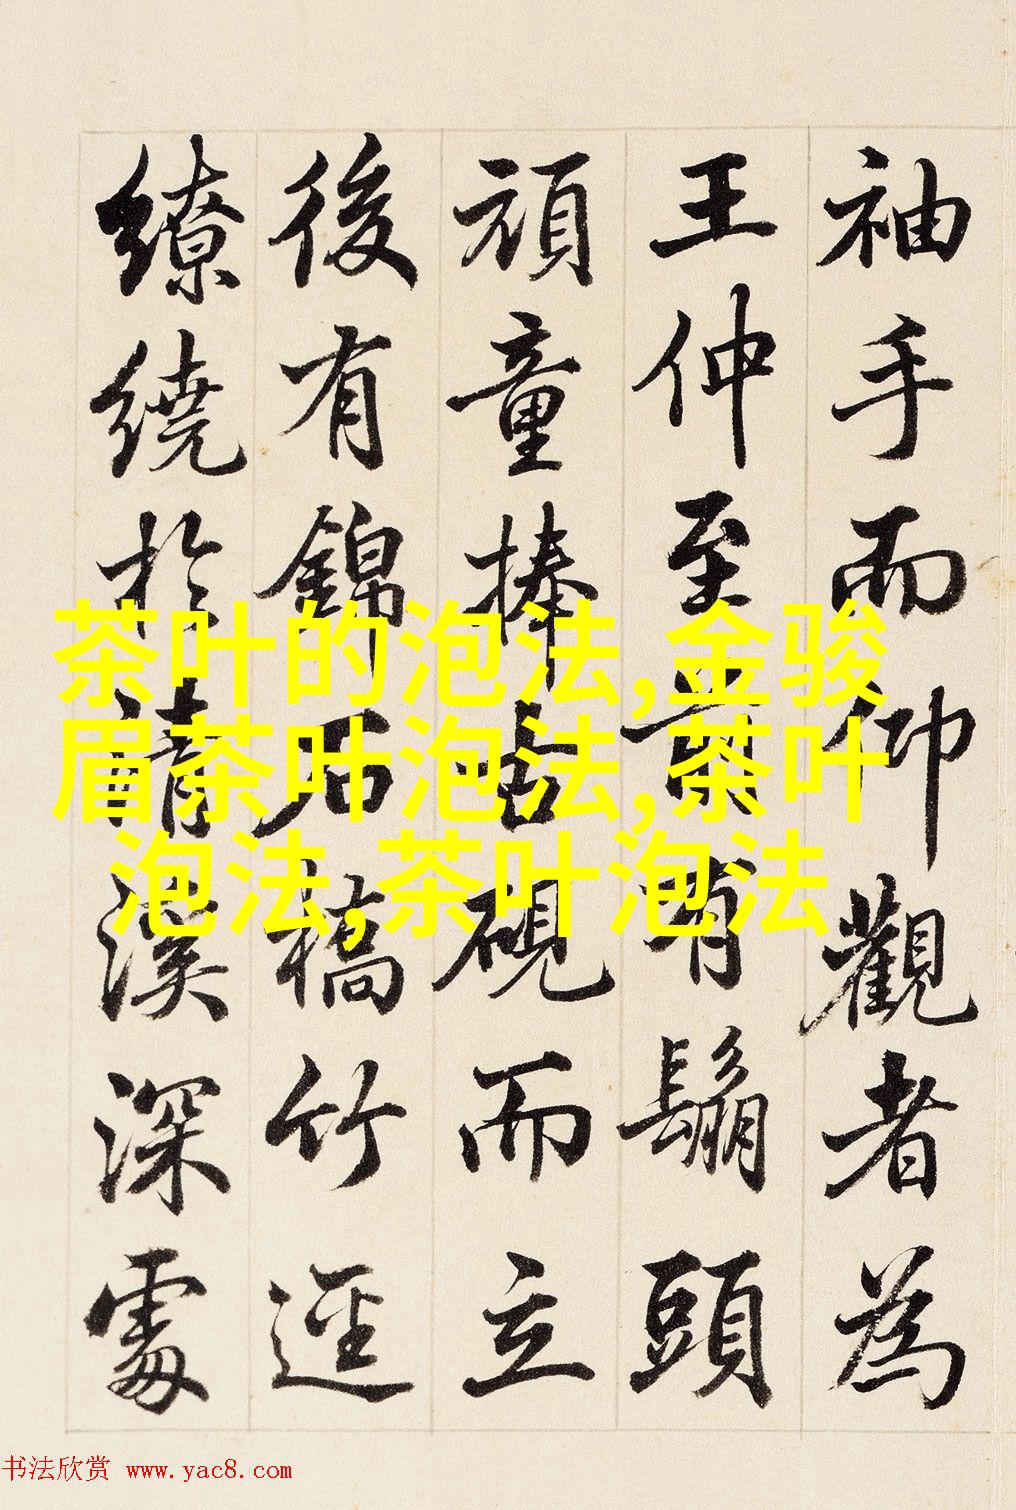 袖手而仰觀者為
王仲至前有鬅頭
頑童捧古硯而立
後有錦石橋竹逕
繚繞於清溪深處
茶叶的泡法,金骏
眉茶叶泡法,茶叶
泡法,茶叶泡法
书法欣赏 www.yac8.com